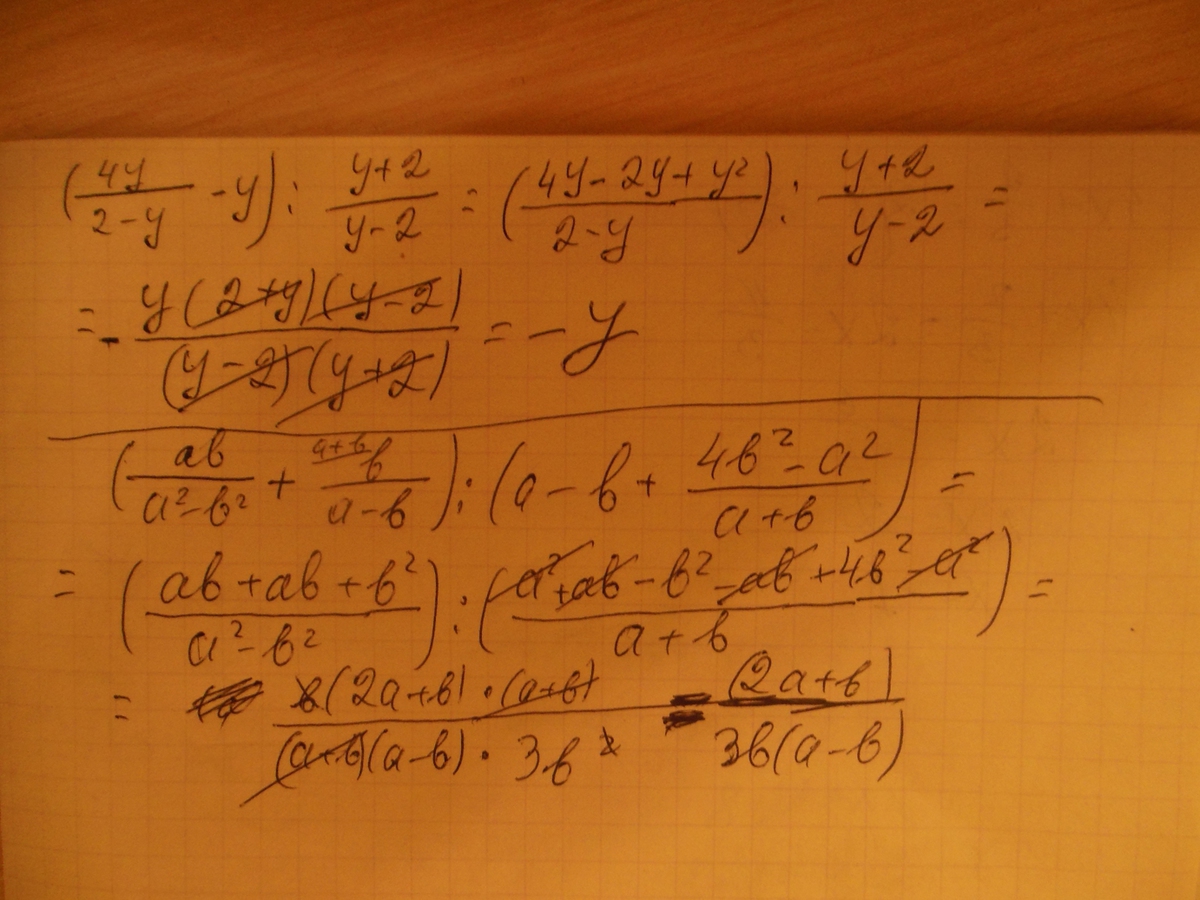 (4y/(2-y) - y) : (y+2)/(y-2) = ((4y-2y+y²)/(2-y)) : (y+2)/(y-2) =
= - y(2+y)(y-2)/((y-2)(y+2)) = -y
(ab/(a²-b²) + a+b b/(a-b)) : (a-b+ (4b²-a²)/(a+b)) =
= ((ab+ab+b²)/(a²-b²)) : ((a²+ab-b²-ab+4b²-a²)/(a+b)) =
= b(2a+b)·(a+b)/((a+b)(a-b)·3b²) = (2a+b)/(3b(a-b))